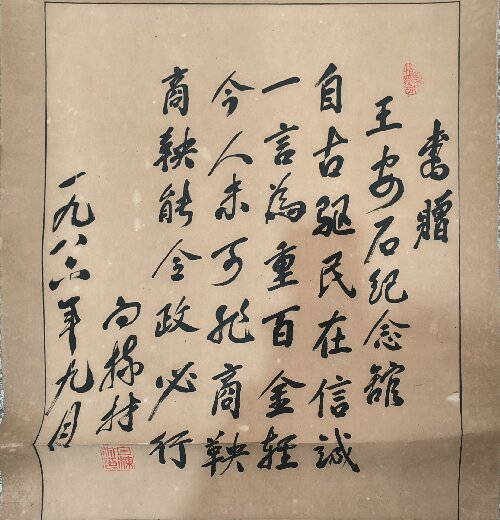 書贈
王安石紀念舘
自古驅民在信誠
一言為重百金輕
今人未可非商鞅
商鞅能令政必行
白棟材
一九八六年九月